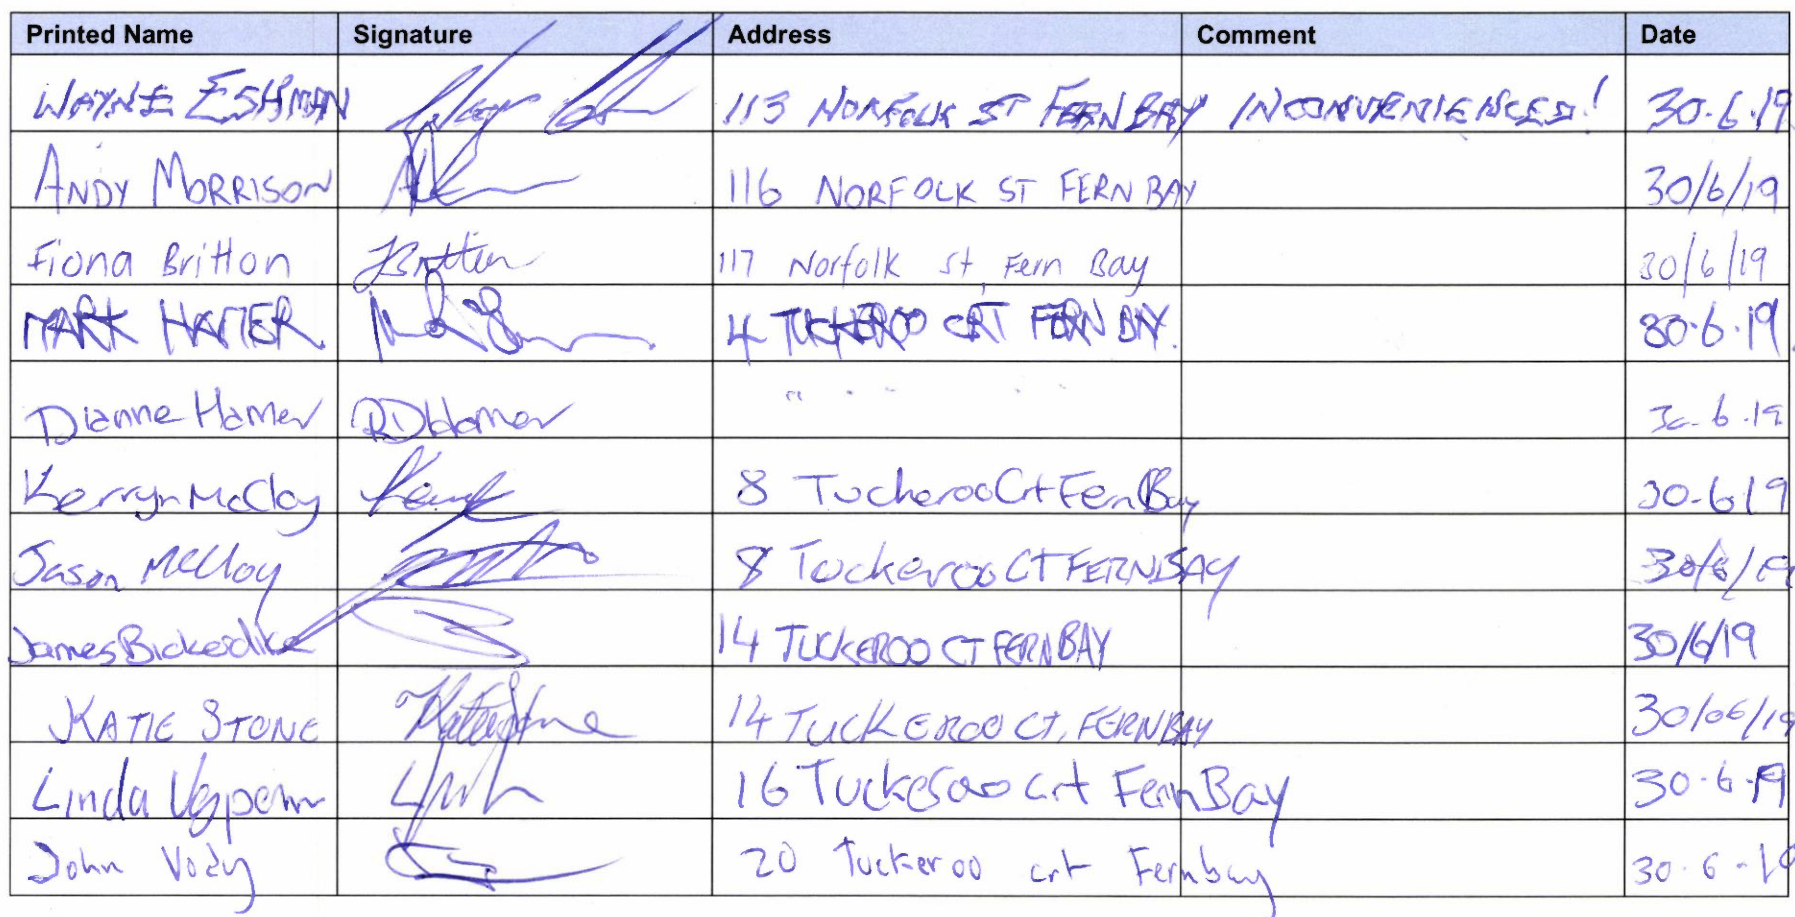 Printed Name Signature Address Comment Date
WAYNE ESHMAN 113 NORFOLK ST FERN BAY INCONVENIENCED! 30.6.19
ANDY MORRISON 116 NORFOLK ST FERN BAY 30/6/19
Fiona Britton FBritton 117 Norfolk st Fern Bay 30/6/19
MARK HAMER 4 TUCKEROO CRT FERN BAY. 30.6.19
Dianne Hamer RDHamer " " " " " 30.6.19
Kerryn McCloy 8 Tuckeroo Crt Fern Bay 30-6 19
Jason McCloy 8 Tuckeroo CT FERN BAY 30/6/19
James Bickerdike 14 TUCKEROO CT FERN BAY 30/6/19
KATIE STONE Katie Stone 14 TUCKEROO CT, FERN BAY 30/06/19
Linda 16 Tuckeroo crt Fern Bay 30-6-19
John 20 Tuckeroo crt Fernbay 30-6-19